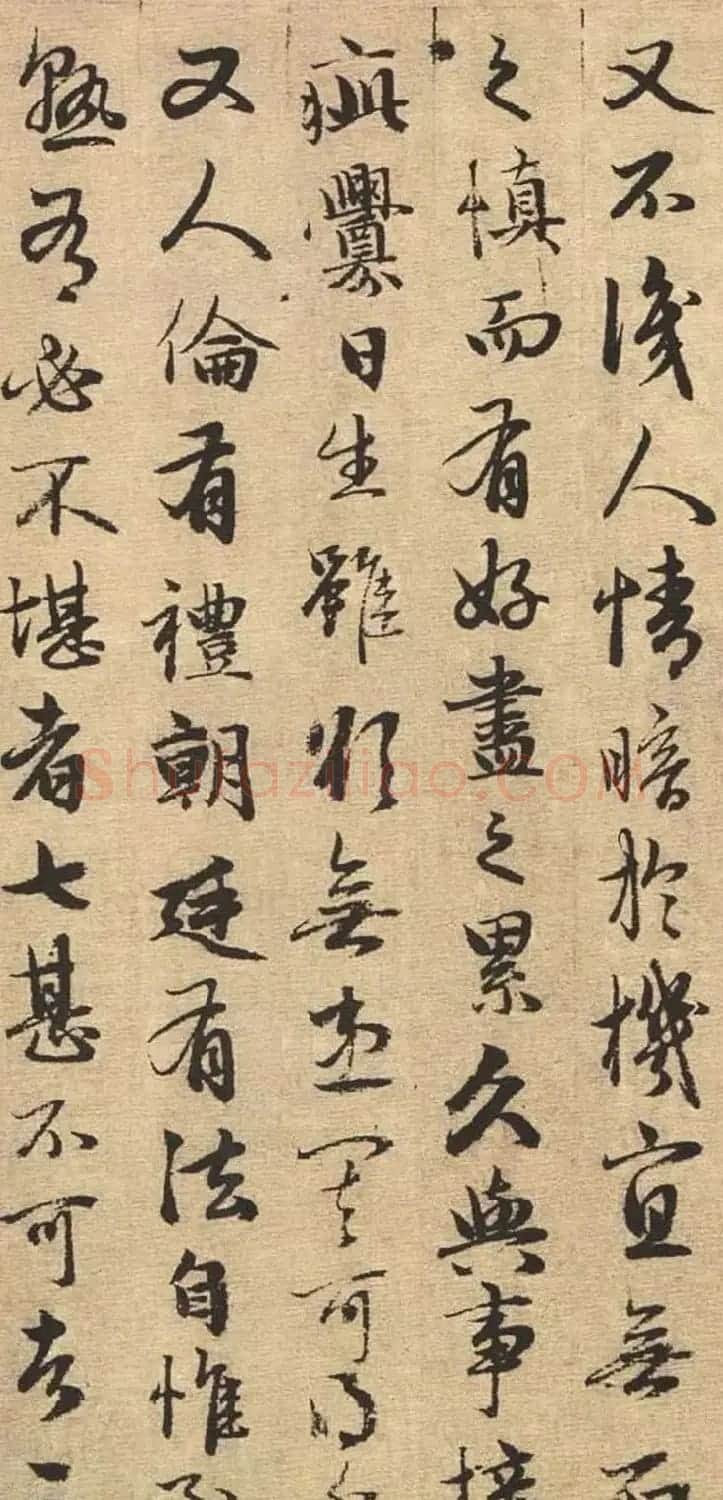 又不識人情暗於機宜無
之慎而有好盡之累久與事接
疵釁日生雖欲無患其可得
又人倫有禮朝廷有法自惟
熟有必不堪者七甚不可者
Shufaziliao.com